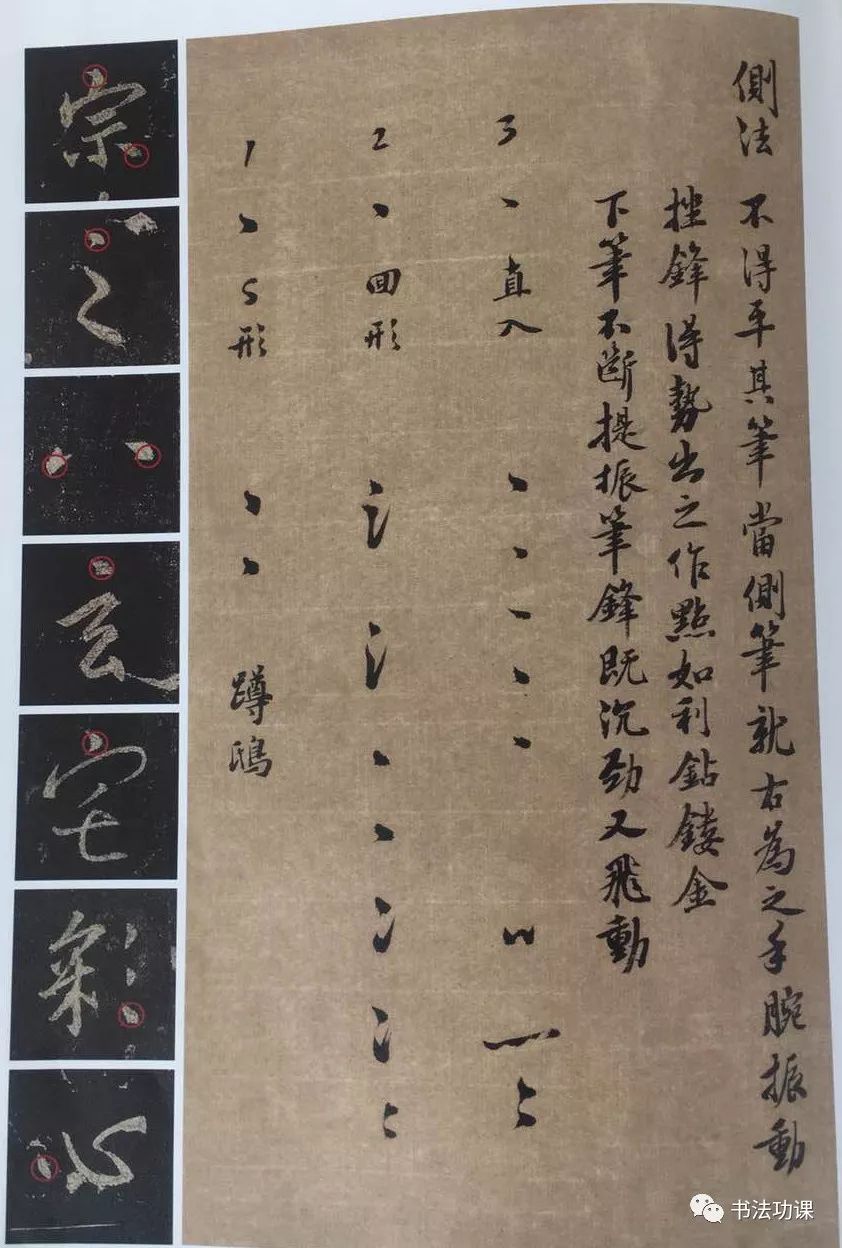 側法 不得平其筆當側筆就右為之手腕振動
挫鋒得勢出之作點如利鉆鏤金
下筆不斷提振筆鋒既沉勁又飛動
3 直入
2 回形
1 S形 蹲鴟
宗
之
八
玄
宅
彩
心
书法功课